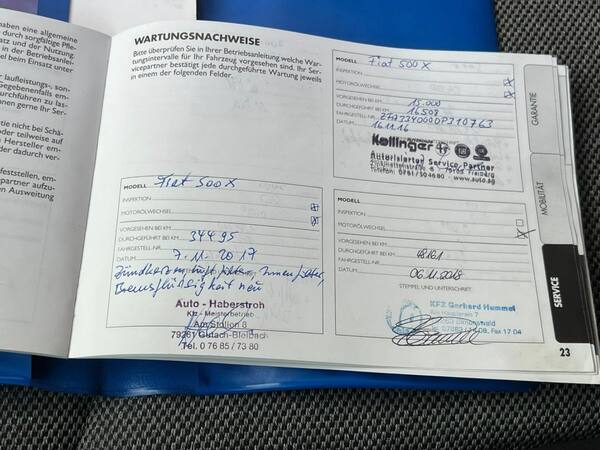 aben eine allgemeine
durch sorgfältige Pfle-
atz und der Nutzung.
in der Betriebsanlei-
beim Einsatz unter
laufleistungs-, son-
Gegebenenfalls em-
durchführen zu las-
n gerne Ihr Ser-
ie nicht bei Schä-
oder teilweise auf
Hersteller em-
dadurch ver-
feststellen, em-
partner aufzu-
Ausweitung
WARTUNGSNACHWEISE
Bitte überprüfen Sie in Ihrer Betriebsanleitung welche War-
tungsintervalle für Ihr Fahrzeug vorgesehen sind. Ihr Ser-
vicepartner bestätigt jede durchgeführte Wartung jeweils
in einem der folgenden Felder.
MODELL Fiat 500 X
INSPEKTION
MOTORÖLWECHSEL
VORGESEHEN BEI KM 15.000
DURCHGEFÜHRT BEI KM 16508
FAHRGESTELL-NR. ZFA3340000P310763
DATUM 16.11.16
Kollinger
Autorisierter Service Partner
79108 Freiburg
www.auto.ag
MODELL Fiat 500 X
INSPEKTION
MOTORÖLWECHSEL
VORGESEHEN BEI KM
DURCHGEFÜHRT BEI KM 34495
FAHRGESTELL-NR.
DATUM 7.11.2017
Zündkerzen, Luftfilter, Innenfilter,
Bremsflüssigkeit neu
Auto - Haberstroh
Kfz - Meisterbetrieb
Am Stollen 8
79261 Gutach-Bleibach
Tel. 0 76 85 / 73 80
MODELL
INSPEKTION
MOTORÖLWECHSEL
VORGESEHEN BEI KM
DURCHGEFÜHRT BEI KM
FAHRGESTELL-NR.
DATUM 06.11.2018
STEMPEL UND UNTERSCHRIFT
KFZ Gerhard Hummel
Fax 17 04
GARANTIE
MOBILITÄT
SERVICE
23